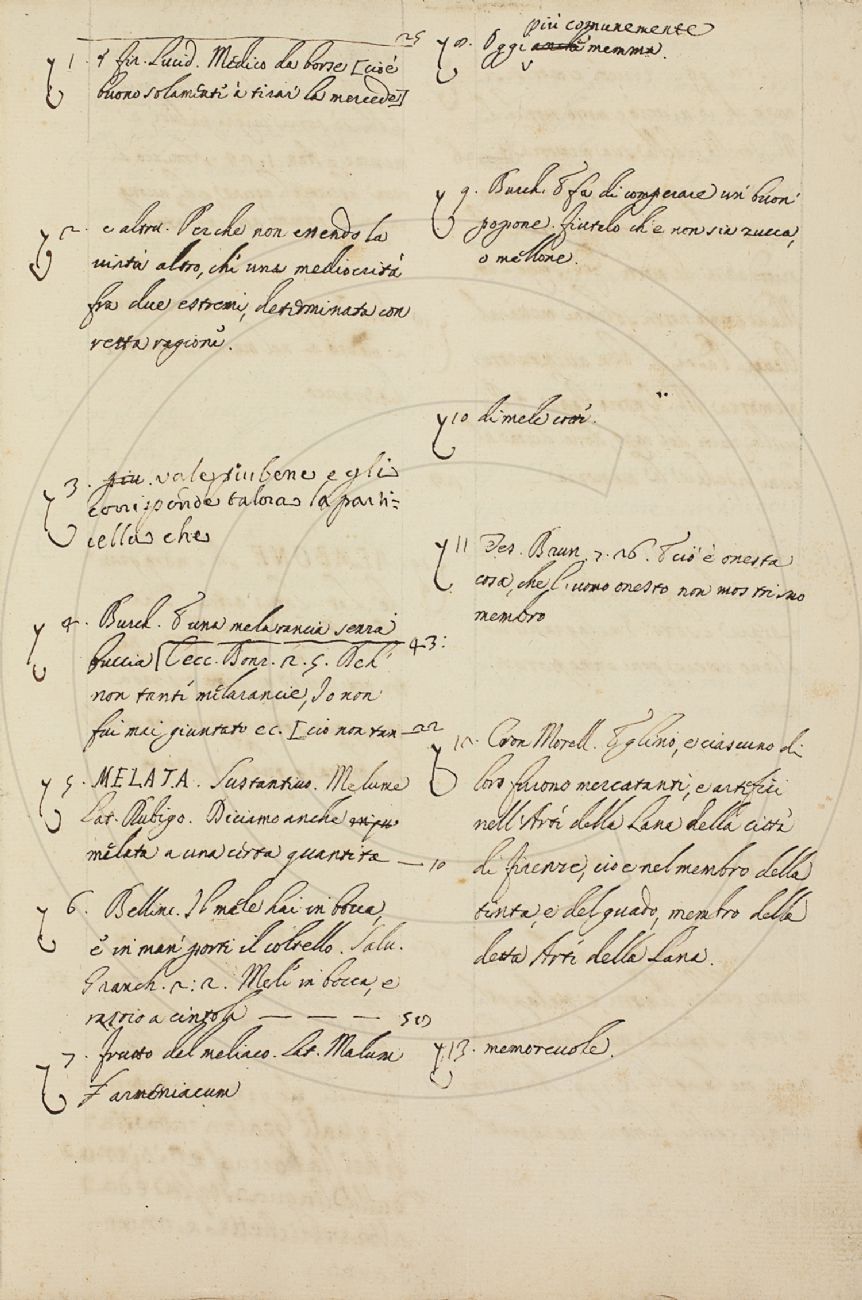 25
1. ꝗ fir. Lucid. Medico da borse [cioè
buono solamente à tirar la mercede]
2. e altru. Perche non essendo la
virtù altro, che una mediocrità
fra due estremi, determinata con
retta ragione.
3. più. vale più bene e gli
corrisponde talora la parti=
cella che
4. Burch. E una melarancia senza
buccia 43:
non tante melarancie, Io non
fui mai giuntato ec. [cio non tan 22
5. MELATA. Sustantivo. Melume
Lat. Rubigo. Diciamo anche
melata a una certa quantità — 10
6. Bellinc. Il mele hai in bocca,
e in man' porti il coltello. Salv.
Granch. 2: 2. Mele in bocca, e
rasoio a cintola — — — 50
7. frutto del meliaco. Lat. Malum
Armeniacum
più comunemente
8. Oggi anche memma.
9. Burch. E fa di comperare un' buon'
popone. fiutelo ch'e non sia zucca,
o mellone.
10 di mele cori.
11 Tes. Brun. 7. 26. E ciò è onesta
cosa, che l'uomo onesto non mostri suo
membro
12. Cron Morell. E glino, e ciascuno di
loro furono mercatanti, e artefici
nell'Arte della Lana della città
di firenze, cioe nel membro della
tinta, e del guado, membro della
detta Arte della Lana.
13. memorevole.